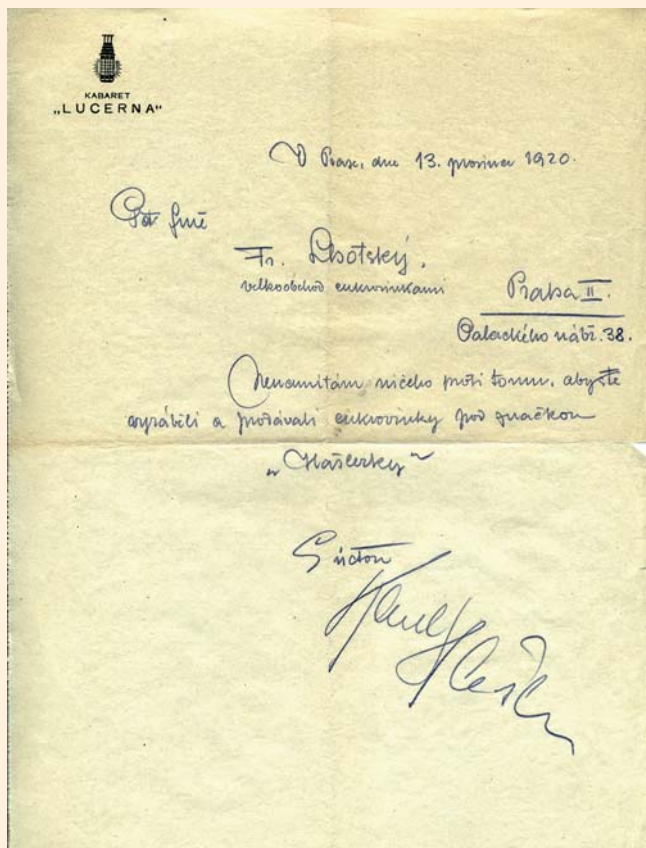 KABARET
„LUCERNA“
V Praze, dne 13. prosince 1920.
Fr. Lhotský.
velkoobchod cukrovinkami
Praha II.
Palackého nábř. 38.
Nenamítám ničeho proti tomu, abyste
vyráběli a prodávali cukrovinky pod značkou
„Hašlerky“
S úctou
Karel Hašler